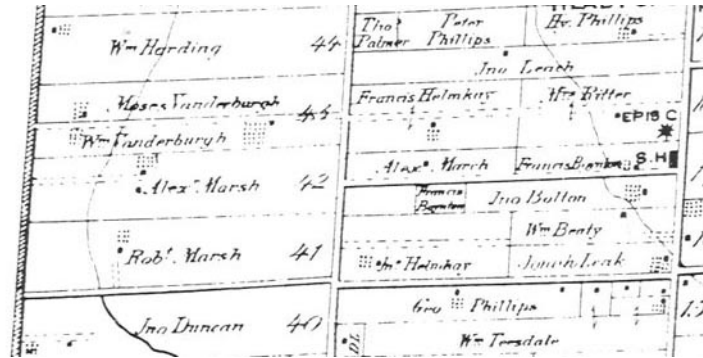 Wm Harding 44
Moses Vanderburgh 43
Wm Vanderburgh
Alexr. Marsh 42
Robt. Marsh 41
Jno Duncan 40
Thos Palmer
Peter Phillips
Hy. Phillips
Jno Leach
Francis Helmkay
Mrs Ritter
EPIS C
Alexr. March
S.H
Francis Boynton
Jno Bolton
Wm Beaty
Jno Helmkay
Jonah Leak
Geo Phillips
Wm Teesdale